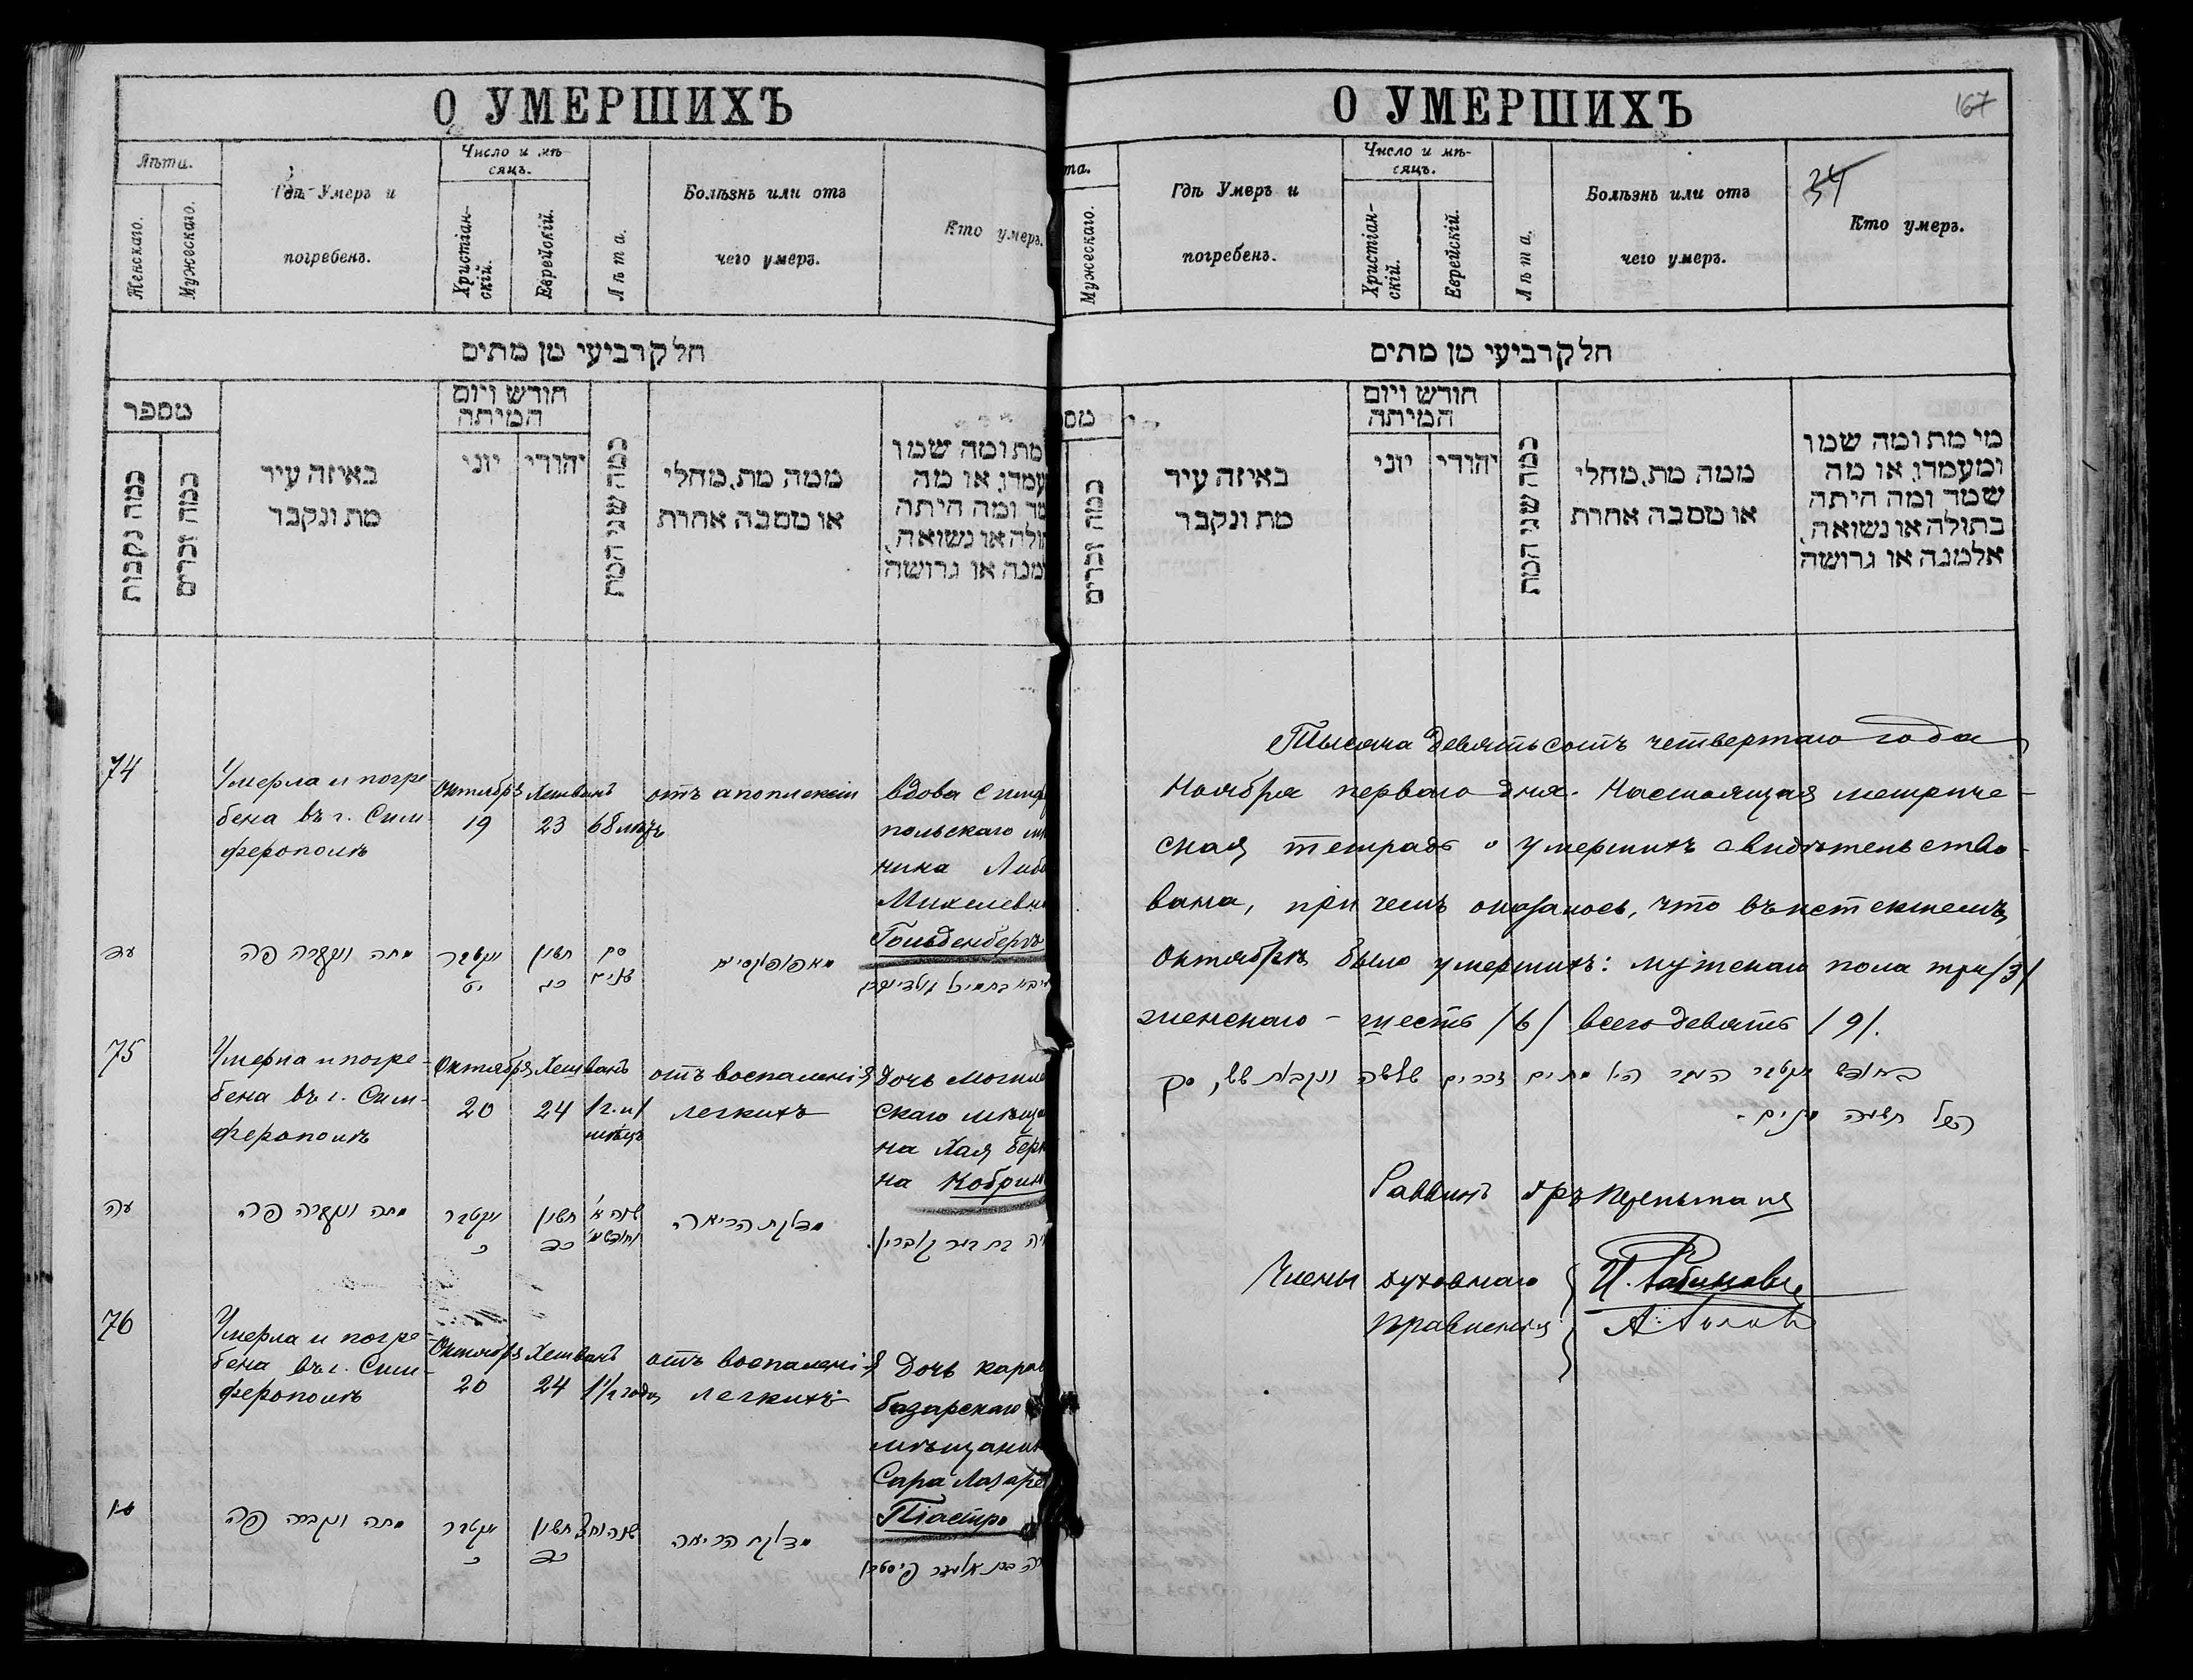 О УМЕРШИХЪ
Лѣта.
Женскаго.
Мужескаго.
Гдѣ Умеръ и
погребенъ.
Число и мѣ-
сяцъ.
Христіан-
скій.
Еврейскій.
Лѣта.
Болѣзнь или отъ
чего умеръ.
Кто умеръ.
חלק רביעי מן מתים
מספר
כמה נקבות
כמה זכרים
באיזה עיר
מת ונקבר
חודש ויום
המיתה
יוני
יהודי
כמה שני המת
ממה מת, מחלי
או מסבה אחרת
מת ומה שמו
עמדו, או מה
מר ומה היתה
תולה או נשואה,
מנה או גרושה
74
Умерла и погре-
бена въ г. Сим-
ферополѣ
Октябрь
19
Хешванъ
23
68 лѣтъ
отъ апоплексіи
вдова Симф
польскаго
ника Либ
Михелевн
Гольденбергъ
עד
מתה ונקברה פה
אקטבר
יט
חשון
כג
סח
שנים
75
Умерла и погре-
бена въ г. Сим-
ферополѣ
Октября
20
Хешванъ
24
1 г. и 1
мѣсяцъ
отъ воспаленія
легкихъ
Дочь Могиле
скаго мѣща
на Хая Берк
на Кобрин
עה
מתה ונקברה פה
אקטבר
כ
חשון
כד
שנה א'
וחודש א'
מדלקת הריאה
יה בת בער קוברין
76
Умерла и погре-
бена въ г. Сим-
ферополѣ
Октября
20
Хешванъ
24
1½ года
отъ воспаленія
легкихъ
Дочь карас
базарскаго
мѣщанин
Сара Лазаре
Піастро
עו
מתה ונקברה פה
אקטבר
כ
חשון
כד
שנה וחצי
מדלקת הריאה
רה בת אלעזר פיסטרו
О УМЕРШИХЪ
167
та.
Мужескаго.
Гдѣ Умеръ и
погребенъ.
Число и мѣ-
сяцъ.
Христіан-
скій.
Еврейскій.
Лѣта.
Болѣзнь или отъ
чего умеръ.
34
Кто умеръ.
חלק רביעי מן מתים
מס
כמה זכרים
באיזה עיר
מת ונקבר
חודש ויום
המיתה
יוני
יהודי
כמה שני המת
ממה מת, מחלי
או מסבה אחרת
מי מת ומה שמו
ומעמדו, או מה
שמה ומה היתה
בתולה או נשואה,
אלמנה או גרושה
Тысяча девятьсотъ четвертаго года
Ноября перваго дня. Настоящая метриче-
ская тетрадь о умершихъ свидѣтельство-
вана, при чемъ оказалось, что въ истекшемъ
Октябрѣ было умершихъ: мужскаго пола три /3/
женскаго - шесть /6/ всего девять /9/.
בחודש אקטבר העבר היו מתים זכרים שלשה ונקבות שש, סך
הכל תשעה מתים.
Раввинъ
Члены духовнаго
правленія
И. Рабиновичъ